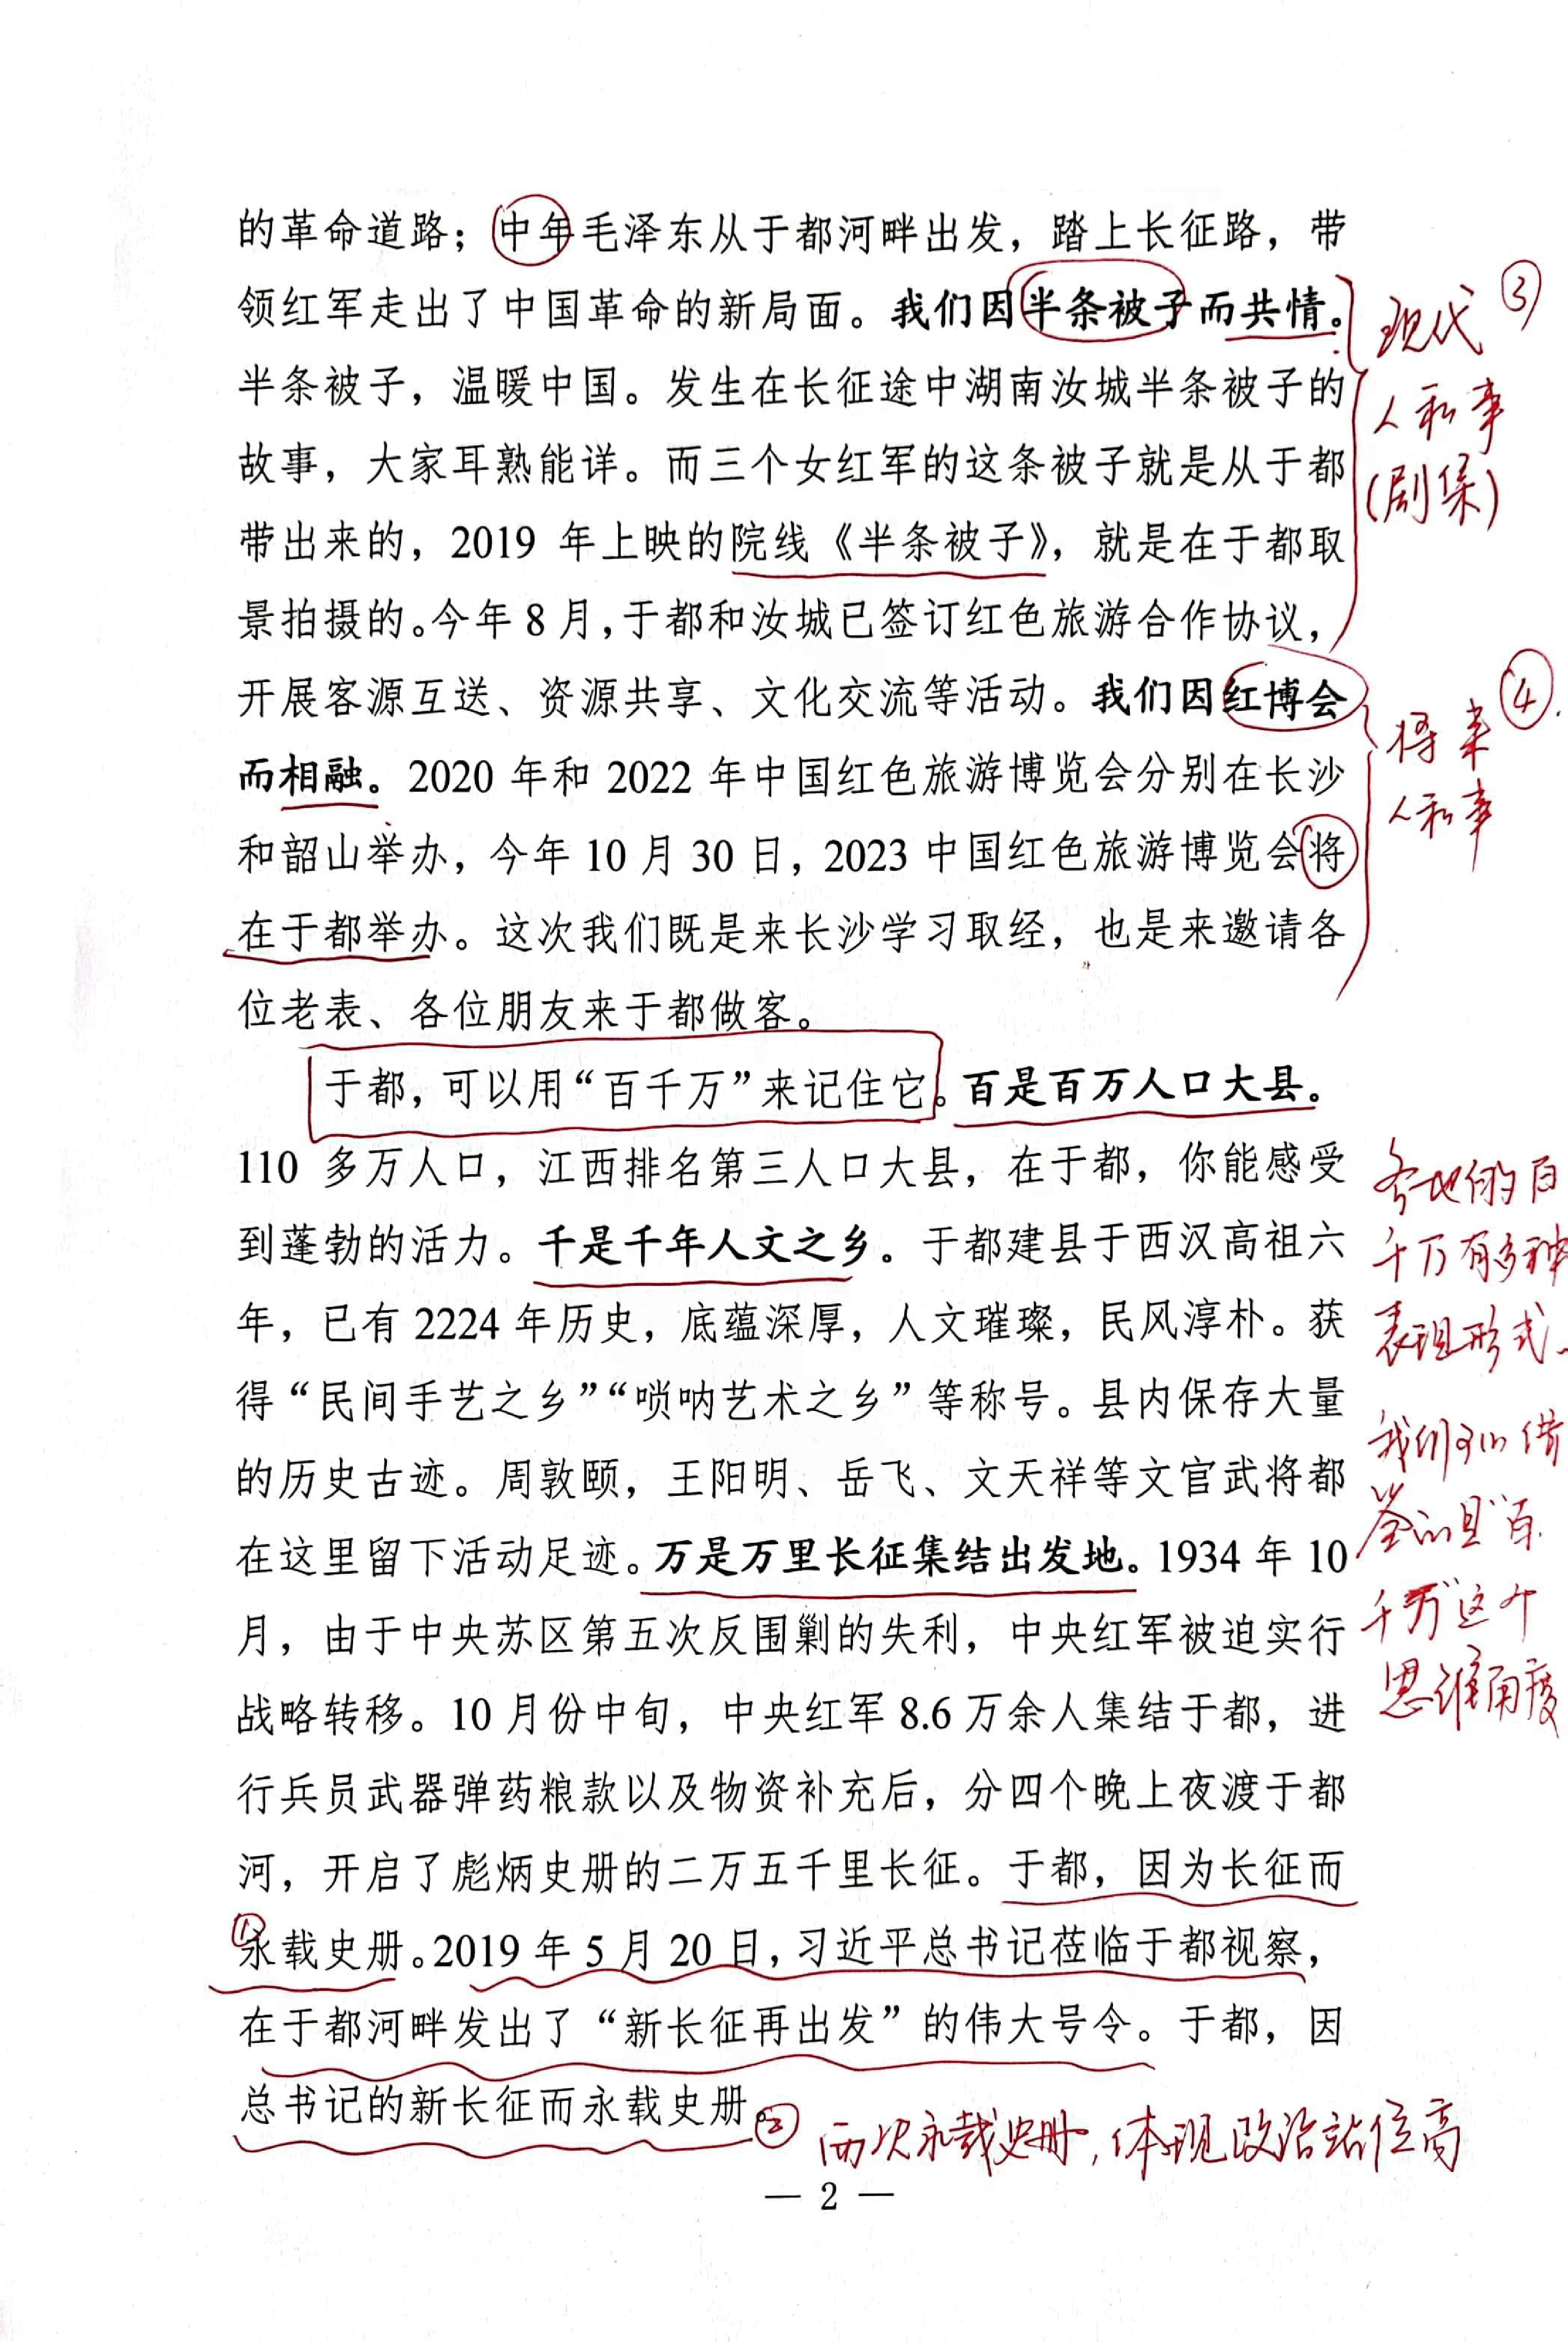 的革命道路；中年毛泽东从于都河畔出发，踏上长征路，带
领红军走出了中国革命的新局面。我们因半条被子而共情。
半条被子，温暖中国。发生在长征途中湖南汝城半条被子的
故事，大家耳熟能详。而三个女红军的这条被子就是从于都
带出来的，2019 年上映的院线《半条被子》，就是在于都取
景拍摄的。今年 8 月，于都和汝城已签订红色旅游合作协议，
开展客源互送、资源共享、文化交流等活动。我们因红博会
而相融。2020 年和 2022 年中国红色旅游博览会分别在长沙
和韶山举办，今年 10 月 30 日，2023 中国红色旅游博览会将
在于都举办。这次我们既是来长沙学习取经，也是来邀请各
位老表、各位朋友来于都做客。
③
现代
人和事
(剧集)
④
将来
人和事
于都，可以用“百千万”来记住它。百是百万人口大县。
110 多万人口，江西排名第三人口大县，在于都，你能感受
到蓬勃的活力。千是千年人文之乡。于都建县于西汉高祖六
年，已有 2224 年历史，底蕴深厚，人文璀璨，民风淳朴。获
得“民间手艺之乡”“唢呐艺术之乡”等称号。县内保存大量
的历史古迹。周敦颐，王阳明、岳飞、文天祥等文官武将都
在这里留下活动足迹。万是万里长征集结出发地。1934 年 10
月，由于中央苏区第五次反围剿的失利，中央红军被迫实行
战略转移。10 月份中旬，中央红军 8.6 万余人集结于都，进
行兵员武器弹药粮款以及物资补充后，分四个晚上夜渡于都
河，开启了彪炳史册的二万五千里长征。于都，因为长征而
①
永载史册。2019 年 5 月 20 日，习近平总书记莅临于都视察，
在于都河畔发出了“新长征再出发”的伟大号令。于都，因
总书记的新长征而永载史册。
各地的百
千万有多种
表现形式
我们可以借
鉴的是“百
千万”这个
思维角度
② 两次永载史册，体现政治站位高
— 2 —